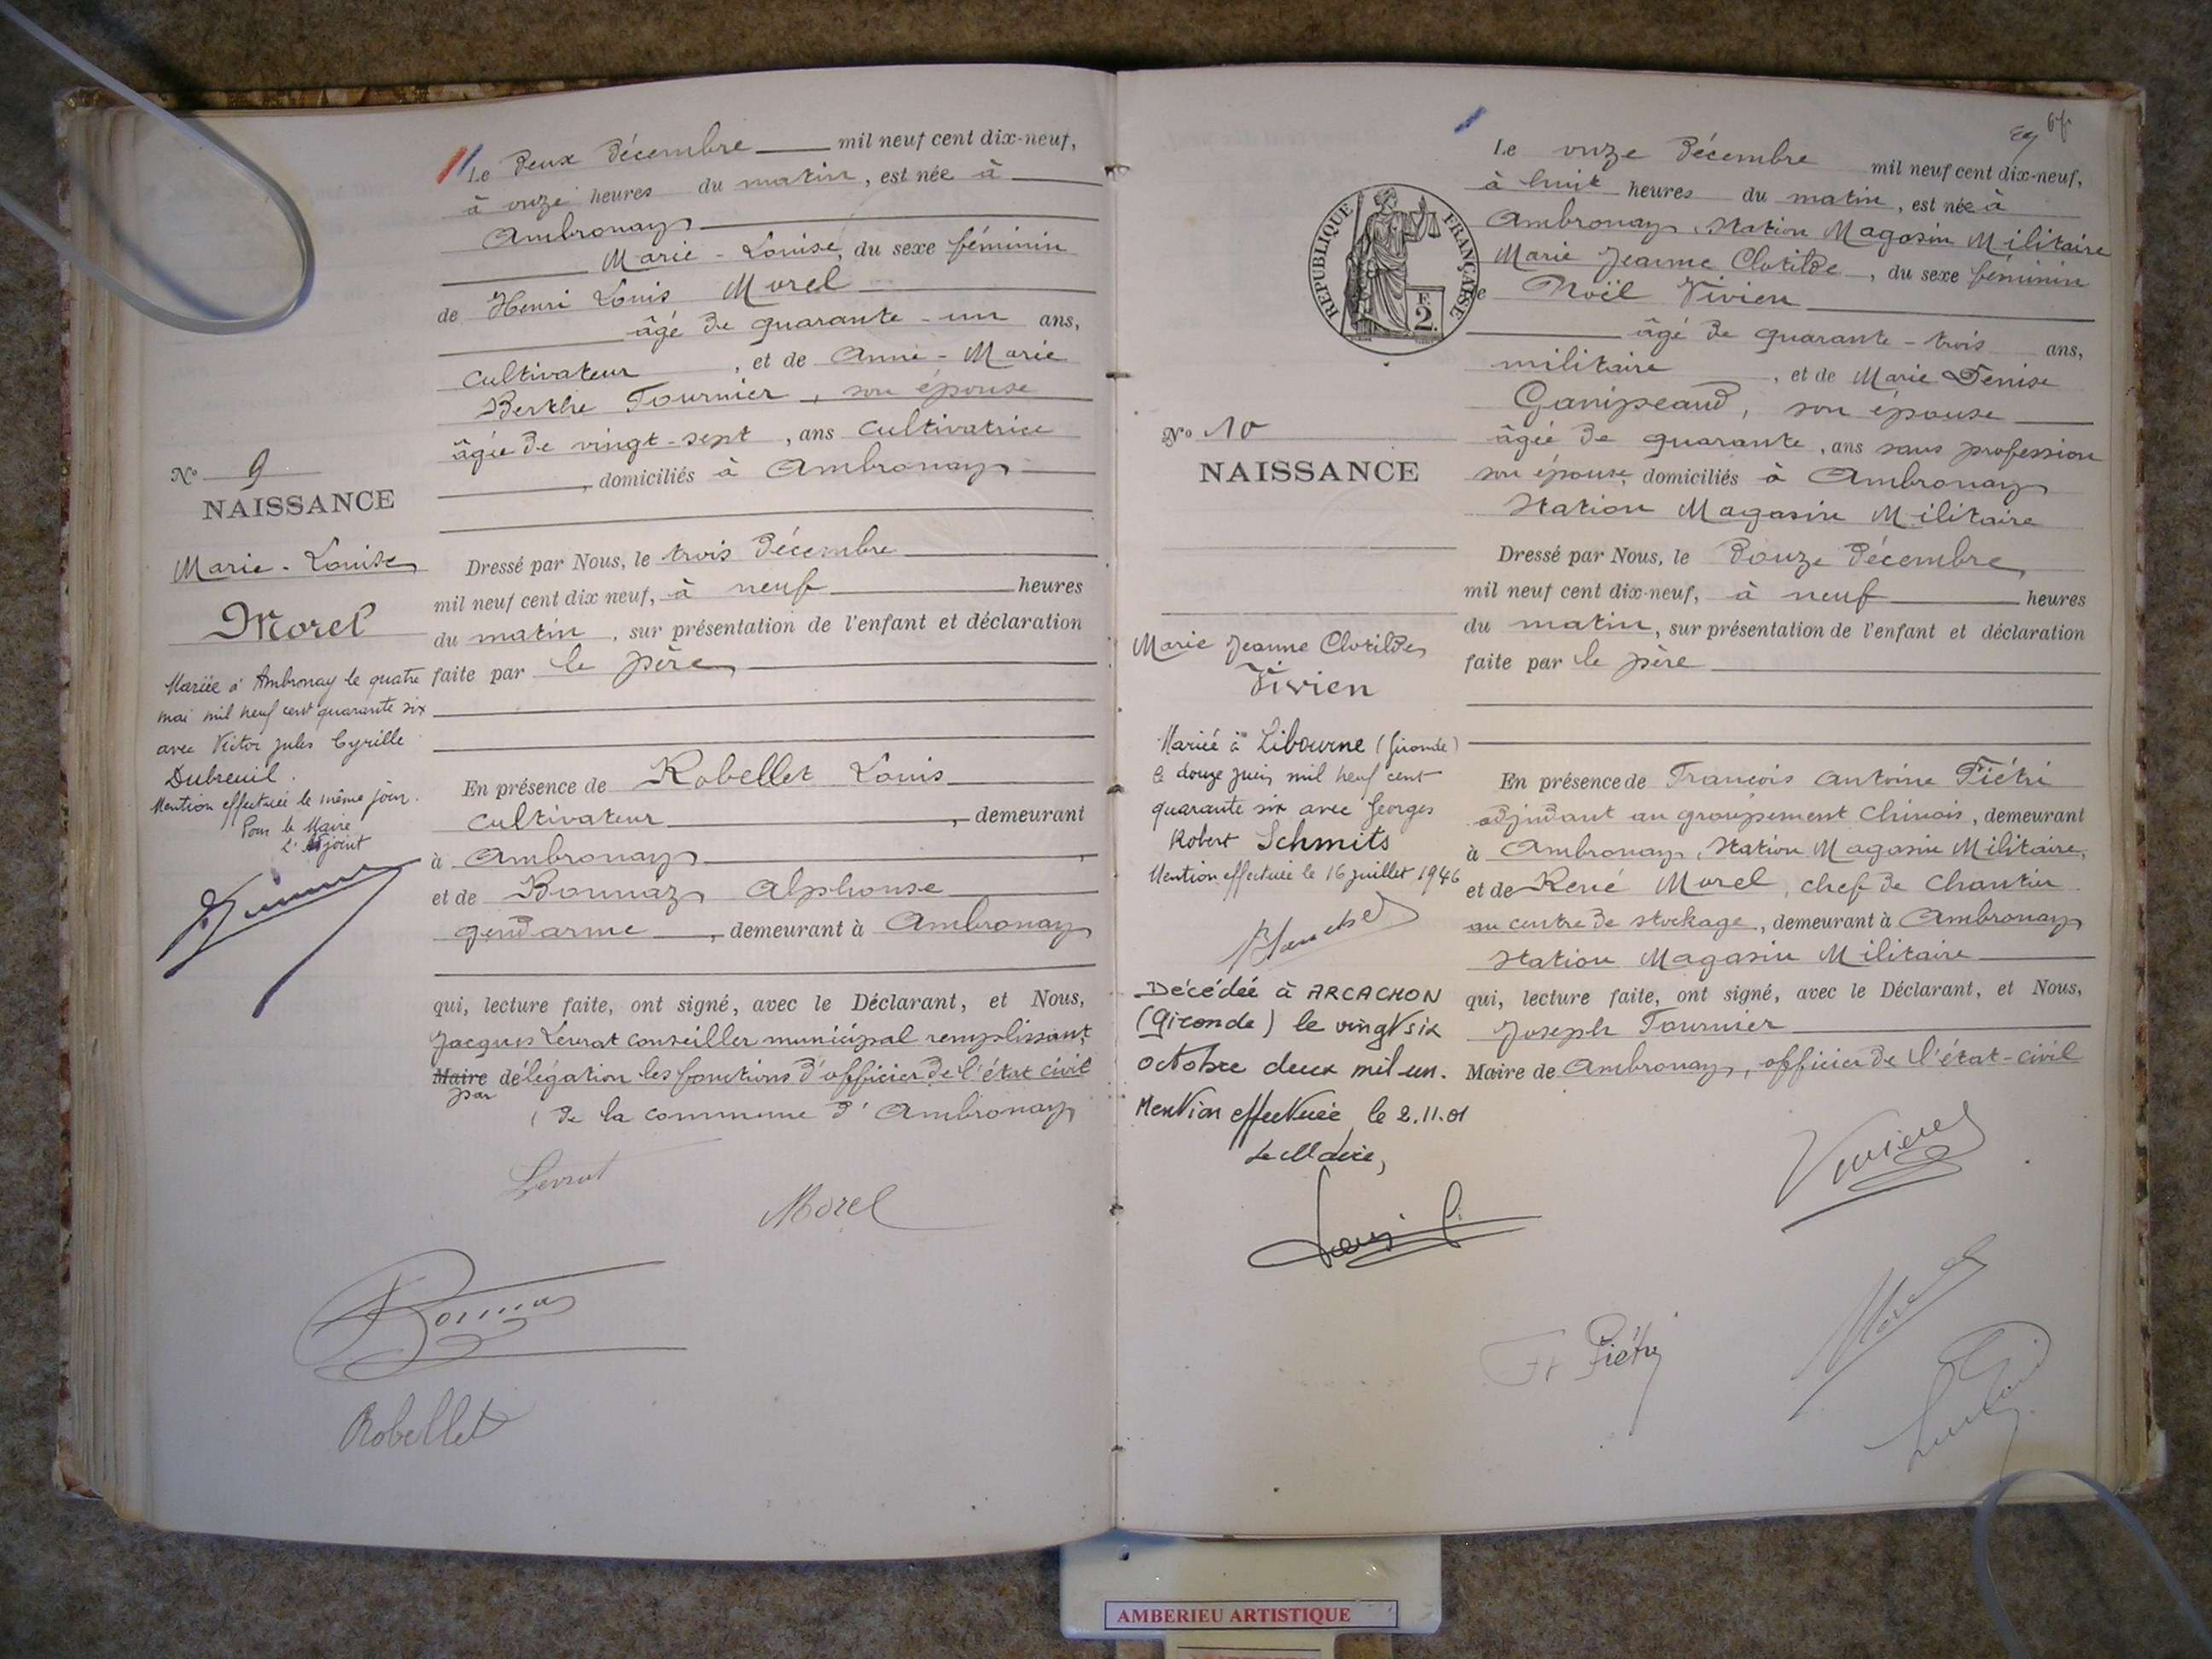 Le Deux Décembre mil neuf cent dix-neuf,
à onze heures du matin, est née à
Ambronay
Marie-Louise, du sexe féminin
de Henri Louis Morel
âgé de quarante-un ans,
cultivateur, et de Anne-Marie
Berthe Tournier, son épouse
âgée de vingt-sept, ans cultivatrice
, domiciliés à Ambronay
No 9
NAISSANCE
Marie-Louise
Morel
Mariée à Ambronay le quatre
mai mil neuf cent quarante six
avec Victor Jules Cyrille
Dubreuil.
Mention effectuée le même jour.
Pour le Maire
L'Adjoint
Dressé par Nous, le trois Décembre
mil neuf cent dix neuf, à neuf heures
du matin, sur présentation de l'enfant et déclaration
faite par le père
En présence de Robellet Louis
cultivateur, demeurant
à Ambronay,
et de Bonnaz Alphonse
gendarme, demeurant à Ambronay
qui, lecture faite, ont signé, avec le Déclarant, et Nous,
Jacques Levrat conseiller municipal remplissant
Maire par délégation les fonctions d'officier de l'état civil
de la commune d'Ambronay
Levrat
Morel
Bonnaz
Robellet
69
Le onze Décembre mil neuf cent dix-neuf,
à huit heures du matin, est née à
Ambronay, Station Magasin Militaire
Marie Jeanne Clotilde, du sexe féminin
de Noël Vivien
âgé de quarante-trois ans,
militaire, et de Marie Denise
Ganipeaud, son épouse
âgée de quarante, ans sans profession
son épouse, domiciliés à Ambronay
Station Magasin Militaire
RÉPUBLIQUE FRANÇAISE
F.
2.
No 10
NAISSANCE
Marie Jeanne Clotilde
Vivien
Mariée à Libourne (Gironde)
le douze juin mil neuf cent
quarante six avec Georges
Robert Schmits
Mention effectuée le 16 juillet 1946
Décédée à ARCACHON
(Gironde) le vingt six
octobre deux mil un.
Mention effectuée le 2.11.01
Le Maire,
Dressé par Nous, le Douze Décembre
mil neuf cent dix-neuf, à neuf heures
du matin, sur présentation de l'enfant et déclaration
faite par le père
En présence de François Antoine Piétri
adjudant au groupement Chinois, demeurant
à Ambronay, Station Magasin Militaire,
et de René Morel, chef de Chantier
au centre de stockage, demeurant à Ambronay
Station Magasin Militaire
qui, lecture faite, ont signé, avec le Déclarant, et Nous,
Joseph Tournier
Maire de Ambronay, officier de l'état-civil
Vivien
Morel
Piétri
AMBERIEU ARTISTIQUE